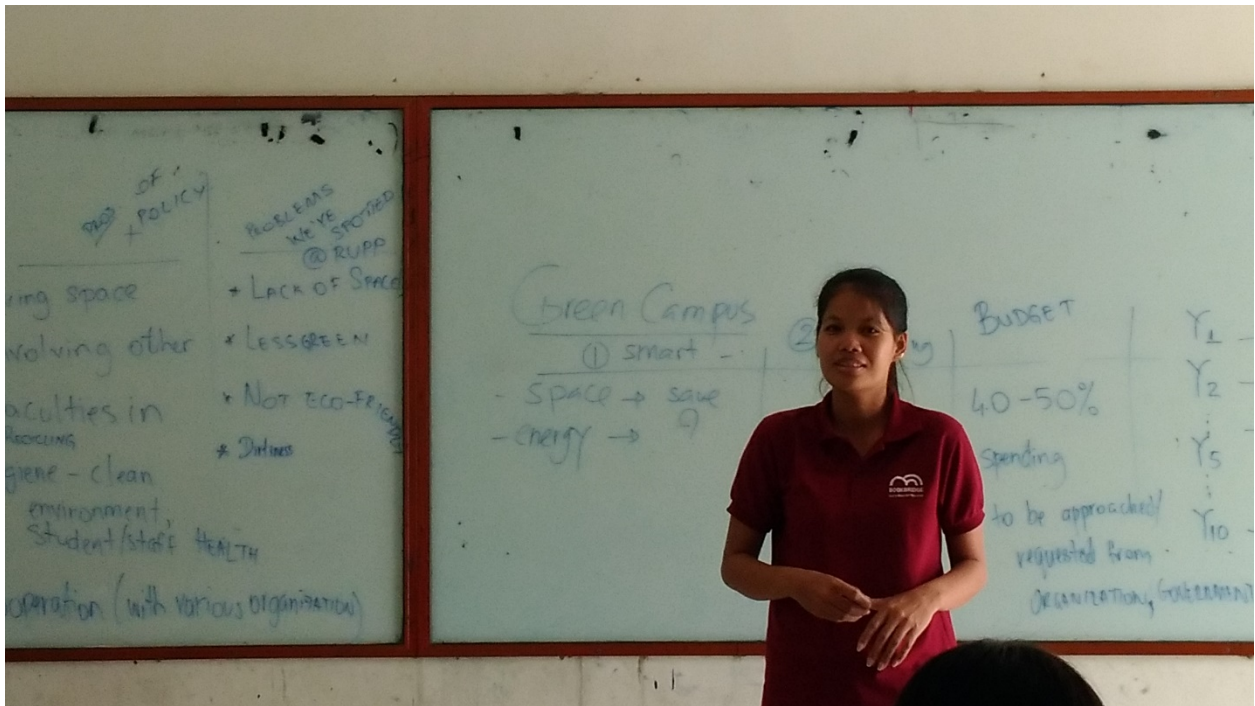 OF
PROS + POLICY
ing space
volving other
aculties in
RECYCLING
giene - clean
environment,
Student/staff HEALTH
operation (with various organization)
PROBLEMS
WE'VE
SPOTTED
@ RUPP
* LACK OF SPACE
* LESS GREEN
* NOT ECO-FRIENDLY
* Dirtiness
Green Campus
① smart - ②
ng
- space → save
- energy →
BUDGET
40-50%
spending
to be approached/
requested from
ORGANIZATION, GOVERNMENT
Y1 -
Y2 -
Y5 -
Y10 -
BOOKBRIDGE